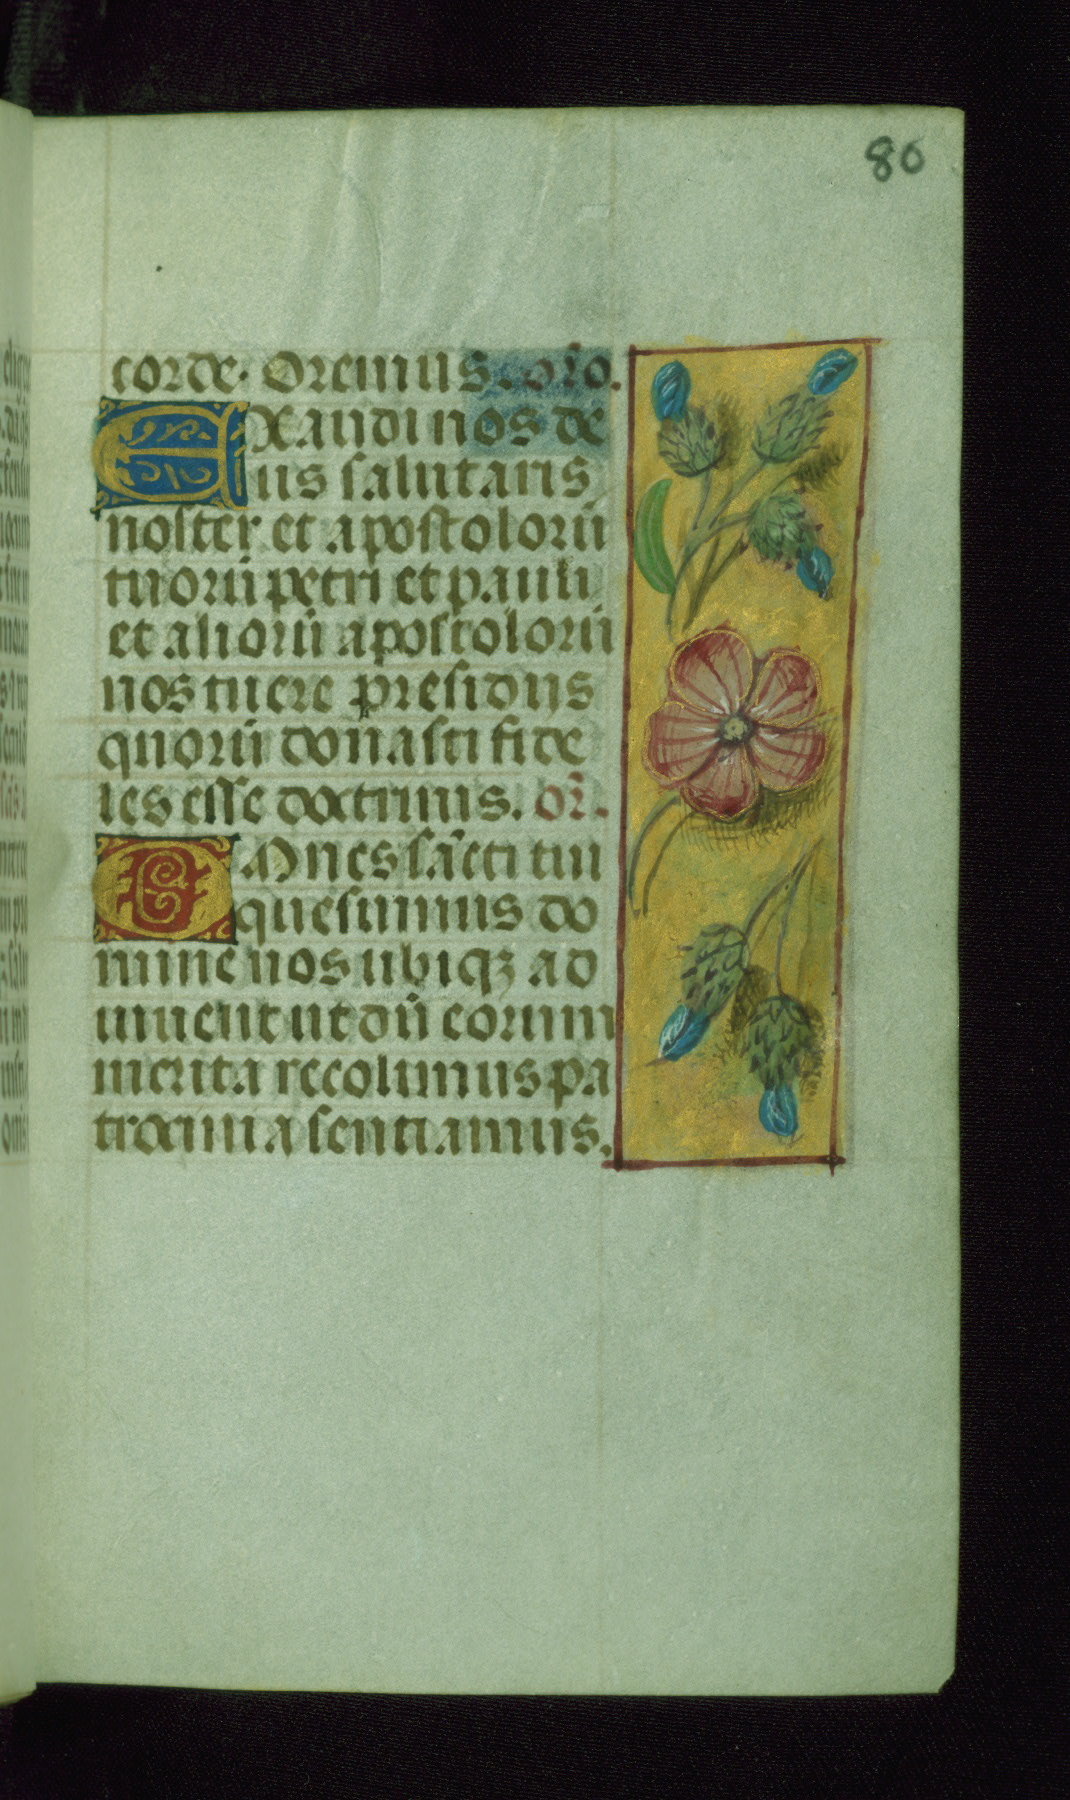 86
corde. Oremus. oro.
EXaudi nos de
us salutaris
noster et apostolorũ
tuorũ petri et pauli
et aliorũ apostolorũ
nos tuere presidijs
quorũ donasti fide
les esse doctrinis. or̃.
OMnes sãcti tui
quesumus do
mine nos ubiqꝫ ad
iuuent ut dũ eorum
merita recolimus pa
trocinia sentiamus.